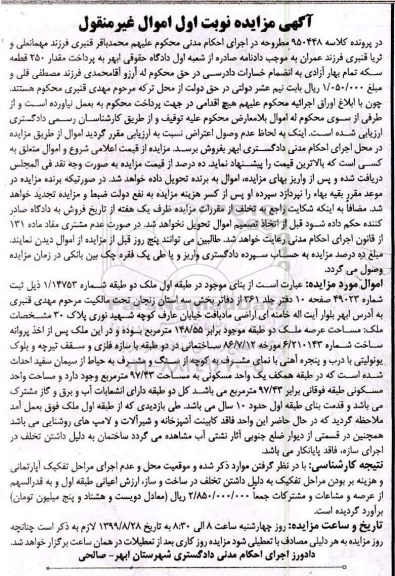 آگهی مزایده نوبت اول اموال غیرمنقول
در پرونده کلاسه ۹۵۰۴۴۸ مطروحه در اجرای احکام مدنی محکوم علیهم محمدباقر قنبری فرزند مهمانعلی و
ثریا قنبری فرزند عمران به موجب دادنامه صادره از شعبه اول دادگاه حقوقی ابهر به پرداخت مقدار ۲۵۰ قطعه
سکه تمام بهار آزادی به انضمام خسارات دادرسی در حق محکوم له آرزو آقامحمدی فرزند مصطفی قلی و
مبلغ ۱/۰۵۰/۰۰۰ ریال بابت نیم عشر دولتی در حق دولت از محل ترکه مرحوم مهدی قنبری محکوم هستند.
چون با ابلاغ اوراق اجرائیه محکوم علیهم هیچ اقدامی در جهت پرداخت محکوم به بعمل نیاورده است و از
طرفی از سوی محکوم له اموال بلامعارض محکوم علیه توقیف و از طریق کارشناسان رسمی دادگستری
ارزیابی شده است. اینک به لحاظ عدم وصول اعتراض نسبت به ارزیابی مقرر گردید اموال از طریق مزایده
در محل اجرای احکام مدنی دادگستری ابهر بفروش برسد. مزایده از قیمت اعلامی شروع و اموال متعلق به
کسی است که بالاترین قیمت را پیشنهاد نماید. ده درصد از قیمت مزایده به صورت وجه نقد فی المجلس
دریافت شده و پس از واریز بهای مزایده، اموال به برنده تحویل داده خواهد شد. در صورتیکه برنده مزایده در
موعد مقرر بقیه بهاء را نپردازد سپرده او پس از کسر هزینه مزایده به نفع دولت ضبط و مزایده تجدید خواهد
شد. مضافا به اینکه شکایت راجع به تخلف از مقررات مزایده ظرف یک هفته از تاریخ فروش به دادگاه صادر
کننده حکم داده شود قبل از اتخاذ تصمیم اموال تحویل نخواهد شد. در صورت عدم مشتری مفاد ماده ۱۳۱
از قانون اجرای احکام مدنی رعایت خواهد شد. طالبین می توانند پنج روز قبل از مزایده از اموال دیدن نمایند.
مبلغ ده درصد مزایده به حساب سپرده دادگستری واریز و یا طی یک فقره چک بین بانکی در زمان مزایده
وصول می گردد.
اموال مورد مزایده: عبارت است از بنای موجود در طبقه اول ملک دو طبقه شماره ۱/۱۴۷۵۳ ذیل ثبت
شماره ۴۹۰۲۳ صفحه ۱۰ دفتر جلد ۳۶۱ از دفاتر بخش سه استان زنجان تحت مالکیت مرحوم مهدی قنبری
به آدرس ابهر بلوار آیت اله خامنه ای اراضی مادبافت خیابان عارف کوچه شهید نوری پلاک ۳۰ مشخصات
ملک: مساحت عرصه ملک دو طبقه موجود برابر ۱۴۸/۵۵ مترمربع بوده و در این ملک پس از اخذ پروانه
ساخت شماره ۶/۲۱۰۱۴۳ مورخه ۸۶/۷/۱۲ ساختمانی در دو طبقه با سازه فلزی و سقف تیرچه و بلوک
یونولیتی با درب و پنجره آهنی با نمای مشرف به کوچه از سنگ و مشرف به حیاط از سیمان سفید احداث
شده است که در طبقه همکف یک واحد مسکونی به مساحت ۹۷/۴۳ مترمربع وجود دارد و مساحت واحد
مسکونی طبقه فوقانی برابر ۹۷/۴۳ مترمربع می باشد. کل دو طبقه دارای انشعابات آب و برق و گاز مشترک
می باشد و قدمت بنای طبقه اول حدود ۱۰ سال می باشد. طی بازدیدی که از طبقه اول ملک فوق بعمل آمد
ملاحظه گردید که در حال حاضر این واحد فاقد کابینت آشپزخانه و شیرآلات و لامپ های روشنایی می باشد
همچنین در قسمتی از دیوار ضلع جنوبی آثار نشتی آب مشاهده می گردد ساختمان به دلیل داشتن تخلف در
اجرای سازه، فاقد پایانکار می باشد.
نتیجه کارشناسی: با در نظر گرفتن موارد ذکر شده و موقعیت محل و عدم اجرای مراحل تفکیک آپارتمانی
و هزینه بر بودن مراحل تفکیک به دلیل داشتن تخلف در ساخت و ساز، ارزش اعیانی طبقه اول و به قدرالسهم
از عرصه و مشاعات و مشترکات جمعا ۲/۸۵۰/۰۰۰/۰۰۰ ریال (معادل دویست و هشتاد و پنج میلیون تومان)
برآورد گردیده است.
تاریخ و ساعت مزایده: روز چهارشنبه ساعت ۸ الی ۸:۳۰ به تاریخ ۱۳۹۹/۸/۲۸ لازم به ذکر است چنانچه
روز مزایده به هر دلیلی مصادف با تعطیلی شود مزایده روز کاری بعد از تعطیلات در همان ساعت برگزار خواهد شد.
دادورز اجرای احکام مدنی دادگستری شهرستان ابهر- صالحی